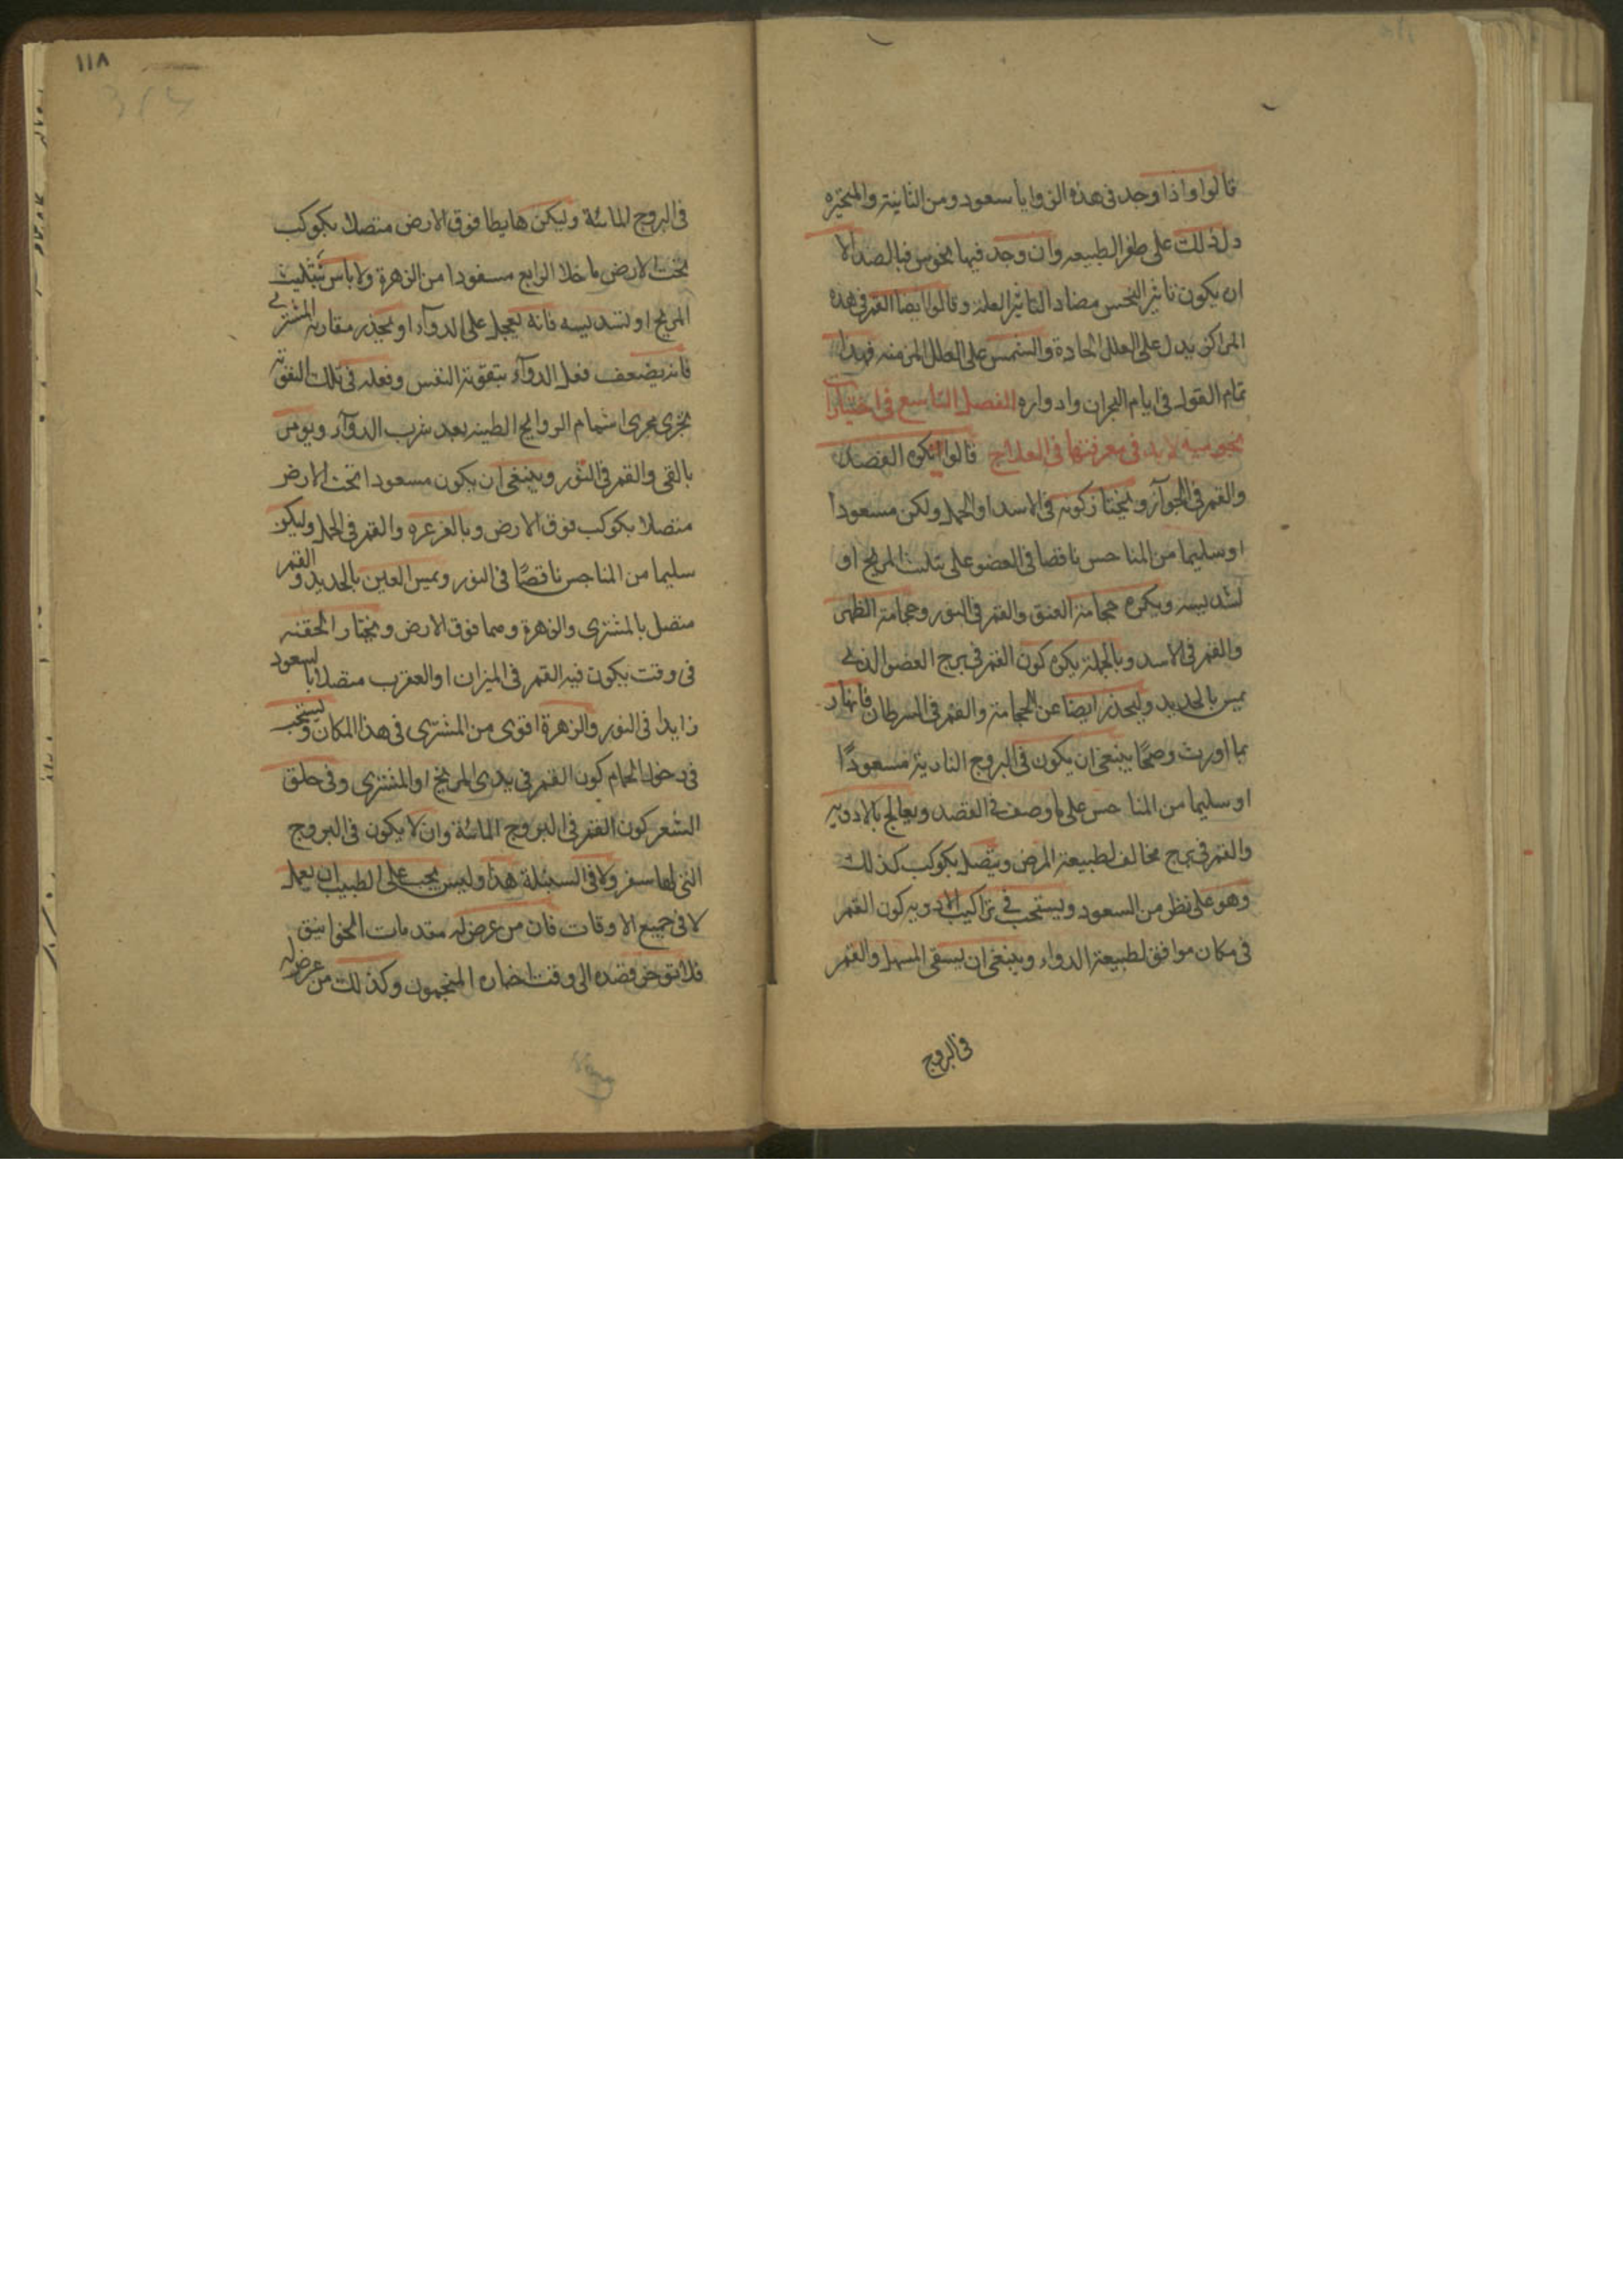 قالوا واذا وجد فى هذه الزوايا سعود ومن الثابته والمتحيره
دل ذلك على ظفر الطبيعه وان وجد فيها نحوس فبالضد الا
ان يكون تاثير النحس مضادا لتاثير العلة وقالوا ايضا القمر فى هذه
المراكز يدل على العلل الحادة والشمس على العلل المزمنه فهذا
تمام القول فى ايام البحران وادواره الفصل التاسع فى اختيارات
نجوميه لابد فى معرفتها فى العلاج قالوا نكره الفصد
والقمر فى الجوزآ ويختار كونه فى الاسد او الحمل ولكن مسعودا
او سليما من المناحس ناقصا فى الضو على تثليث المريخ او
تسديسه ويكره حجامة العنق والقمر فى الثور وحجامة الظهر
والقمر فى الاسد وبالجملة يكره كون القمر فى برج العضو الذى
يمس بالحديد وليحذر ايضا عن الحجامة والقمر فى السرطان فانها ر
بما اورثت وضحًا ينبغى ان يكون فى البروج النارية مسعودًا
او سليما من المناحس على ما وصف فى الفصد ويعالج بالادويه
والقمر فى برج مخالف لطبيعة المرض ويتصل بكوكب كذلك
وهو على نظر من السعود ويستحب فى تراكيب الادويه كون القمر
فى مكان موافق لطبيعة الدواء وينبغى ان يسقى المسهل والقمر
فى البروج
١١٨
فى البروج المائة وليكن هابطا فوق الارض متصلا بكوكب
تحت الارض ما خلا الرابع مسعودا من الزهرة ولا باس بتثليث
المريخ او تسديسه فانه يعجل على الدوآء او يحذر مقاربة المشترى
فانه يضعف فعل الدوآء بتقوية النفس وفعله فى تلك التقوية
يجرى مجرى اشمام الروايح الطيبه بعد شرب الدوآء ويومر
بالقى والقمر فى الثور وينبغى ان يكون مسعودا تحت الارض
متصلا بكوكب فوق الارض وبالغرغره والقمر فى الحمل وليكن
سليما من المناحس ناقصًا فى النور ويمس العين بالحديد والقمر
متصل بالمشترى والزهرة وهما فوق الارض ويختار الحقنه
فى وقت يكون فيه القمر فى الميزان او العقرب متصلا بالسعود
زايدا فى النور والزهرة اقوى من المشترى فى هذا المكان ويستحب
فى دخول الحمام كون القمر فى بيدى المريخ او المشترى وفى حلق
الشعر كون القمر فى البروج المائة وان لا يكون فى البروج
التى لها سفر ولا فى السنبلة هذا وليس يجب على الطبيب ان يعمل
لا فى جميع الاوقات فان من عرض له مقدمات الخوانيق
فلا توخر فصده الى وقت اختاره المنجمون وكذلك من عرض له